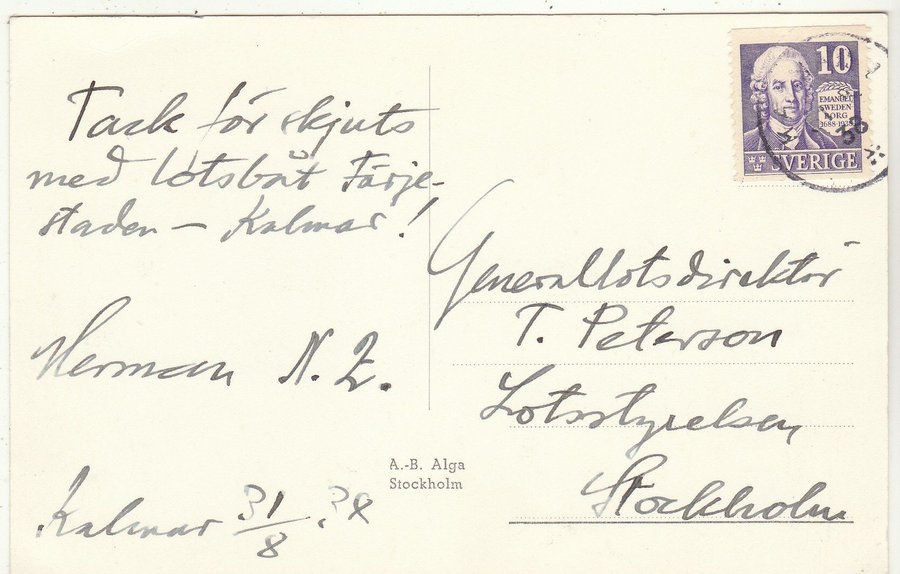 Tack för skjuts
med lotsbåt Färje-
staden – Kalmar!
Herman N. Z.
Kalmar 31/8 . 38
A.-B. Alga
Stockholm
10
EMANUEL
SWEDEN
BORG
1688-1938
SVERIGE
Generallotsdirektör
T. Peterson
Lotsstyrelsen
Stockholm